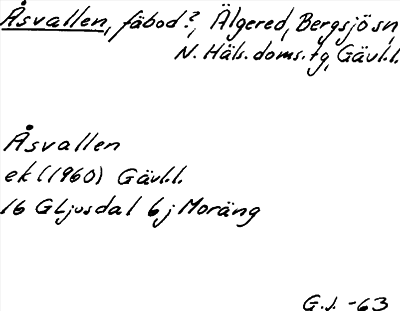 Åsvallen, fäbod?, Älgered, Bergsjö sn,
N. Häls. doms. tg, Gävl.l.
Åsvallen
ek (1960) Gävl.l.
16 G Ljusdal 6 j Moräng
G.J. -63